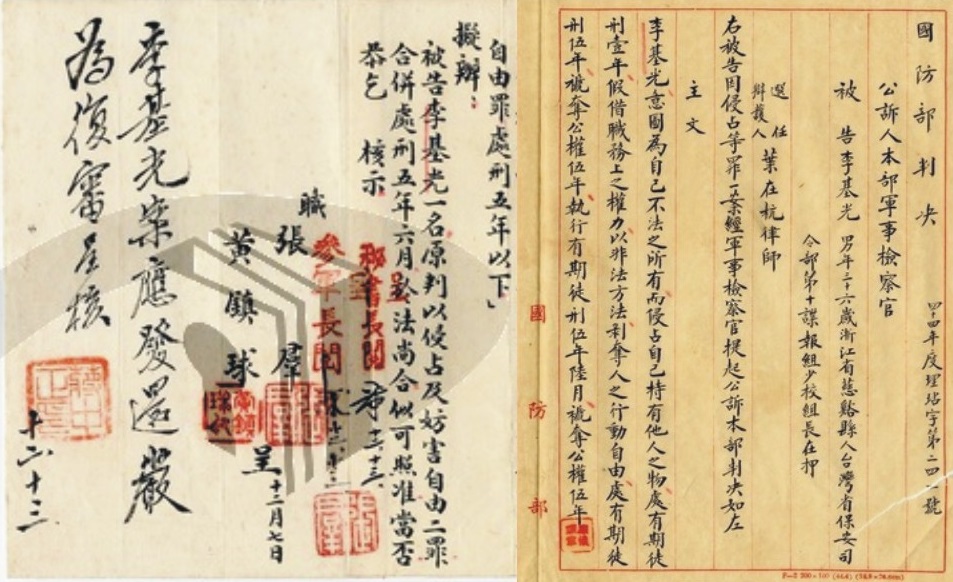 國防部判決　四十四年度理玷字第二四一號
公訴人本部軍事檢察官
被告李基光　男年三十六歲浙江省慈谿縣人台灣省保安司
令部第十諜報組少校組長在押
選任
辯護人　葉在杭律師
右被告因侵占等罪一案經軍事檢察官提起公訴本部判決如左
主文
李基光意圖為自己不法之所有而侵占自己持有他人之物處有期徒
刑壹年假借職務上之權力以非法方法剥奪人之行動自由處有期徒
刑伍年褫奪公權伍年執行有期徒刑伍年陸月褫奪公權伍年
國防部
自由罪處刑五年以下」
擬辦：
被告李基光一名原判以侵占及妨害自由二罪
合併處刑五年六月於法尚合似可照准當否
恭乞　核示
職
張羣
黃鎮球
呈
十二月七日
秘書長閱
參軍長閱
李基光案應發還嚴
為復審呈核
十二十三